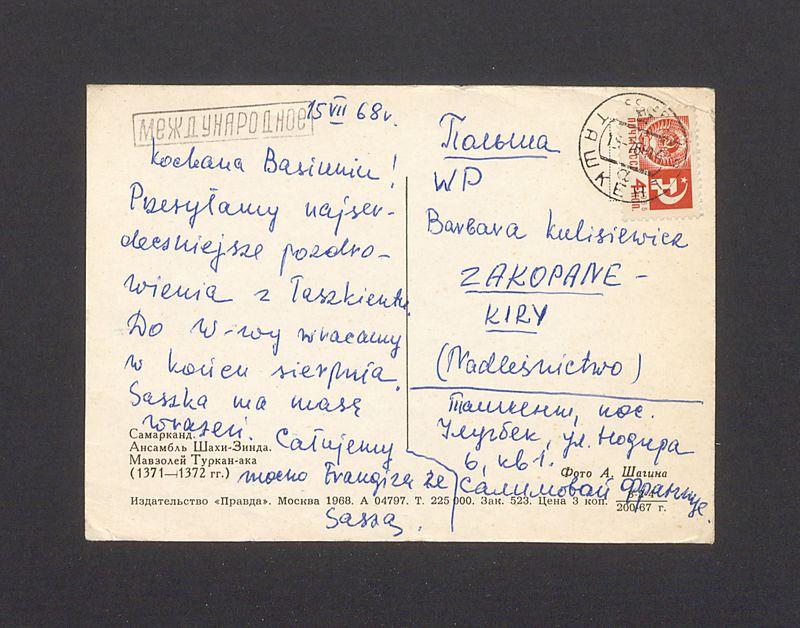 МЕЖДУНАРОДНОЕ
15 VII 68r.
Kochana Basiuniu!
Przesyłamy najser-
deczniejsze pozdro-
wienia z Taszkientu.
Do W-wy wracamy
w końcu sierpnia.
Saszka ma masę
wrażeń. Całujemy
mocno Frangiza ze
Saszą.
Самарканд.
Ансамбль Шахи-Зинда.
Мавзолей Туркан-ака
(1371—1372 гг.)
Польша
WP
Barbara Kulisiewicz
ZAKOPANE -
KIRY
(Nadleśnictwo)
Ташкент, пос.
Улугбек, ул. Нодира
6, кв 1.
Салимовой
Фото А. Шагина
Издательство «Правда». Москва 1968. А 04797. Т. 225 000. Зак. 523. Цена 3 коп.
200/67 г.
ТАШКЕНТ
ПОЧТА СССР
4 КОП.